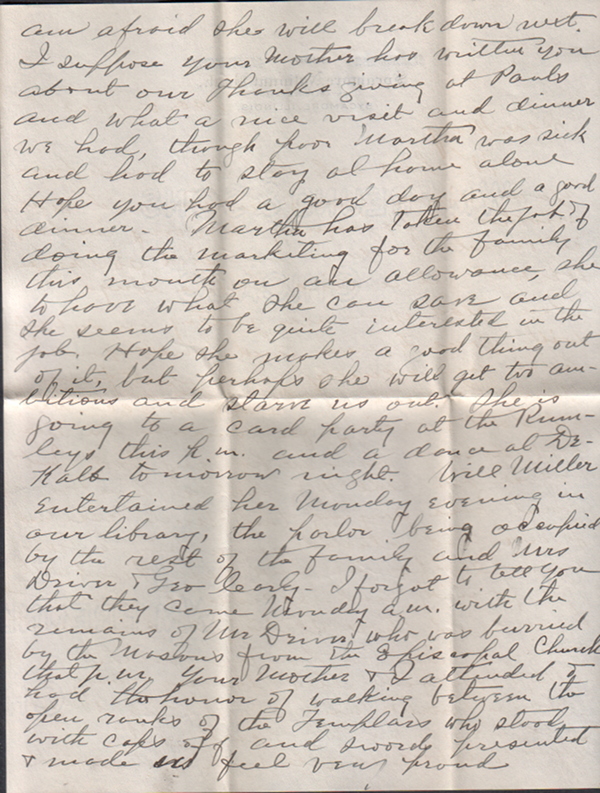 am afraid she will break down next.
I suppose your Mother has written you
about our Thanksgiving at Pauls
and what a nice visit and dinner
we had, though poor Martha was sick
and had to stay at home alone
Hope you had a good day and a good
dinner - Martha has taken the job of
doing the marketing for the family
this month on an allowance, she
to have what she can save and
she seems to be quite interested in the
job. Hope she makes a good thing out
of it, but perhaps she will get too am-
bitious and starve us out. She is
going to a card party at the Rum-
leys this p.m. and a dance at De-
Kalb tomorrow night. Will Miller
entertained her Monday evening in
our library, the parlor being occupied
by the rest of the family and Mrs
Driver & Geo Clearly - I forgot to tell you
that they came Monday a.m. with the
remains of Mr Driver, who was burried
by the Masons from the Episcopal Church
that p.m. Your Mother & I attended &
had the honor of walking between the
open ranks of the Templars who stood
with caps off and swords presented
& made us feel very proud